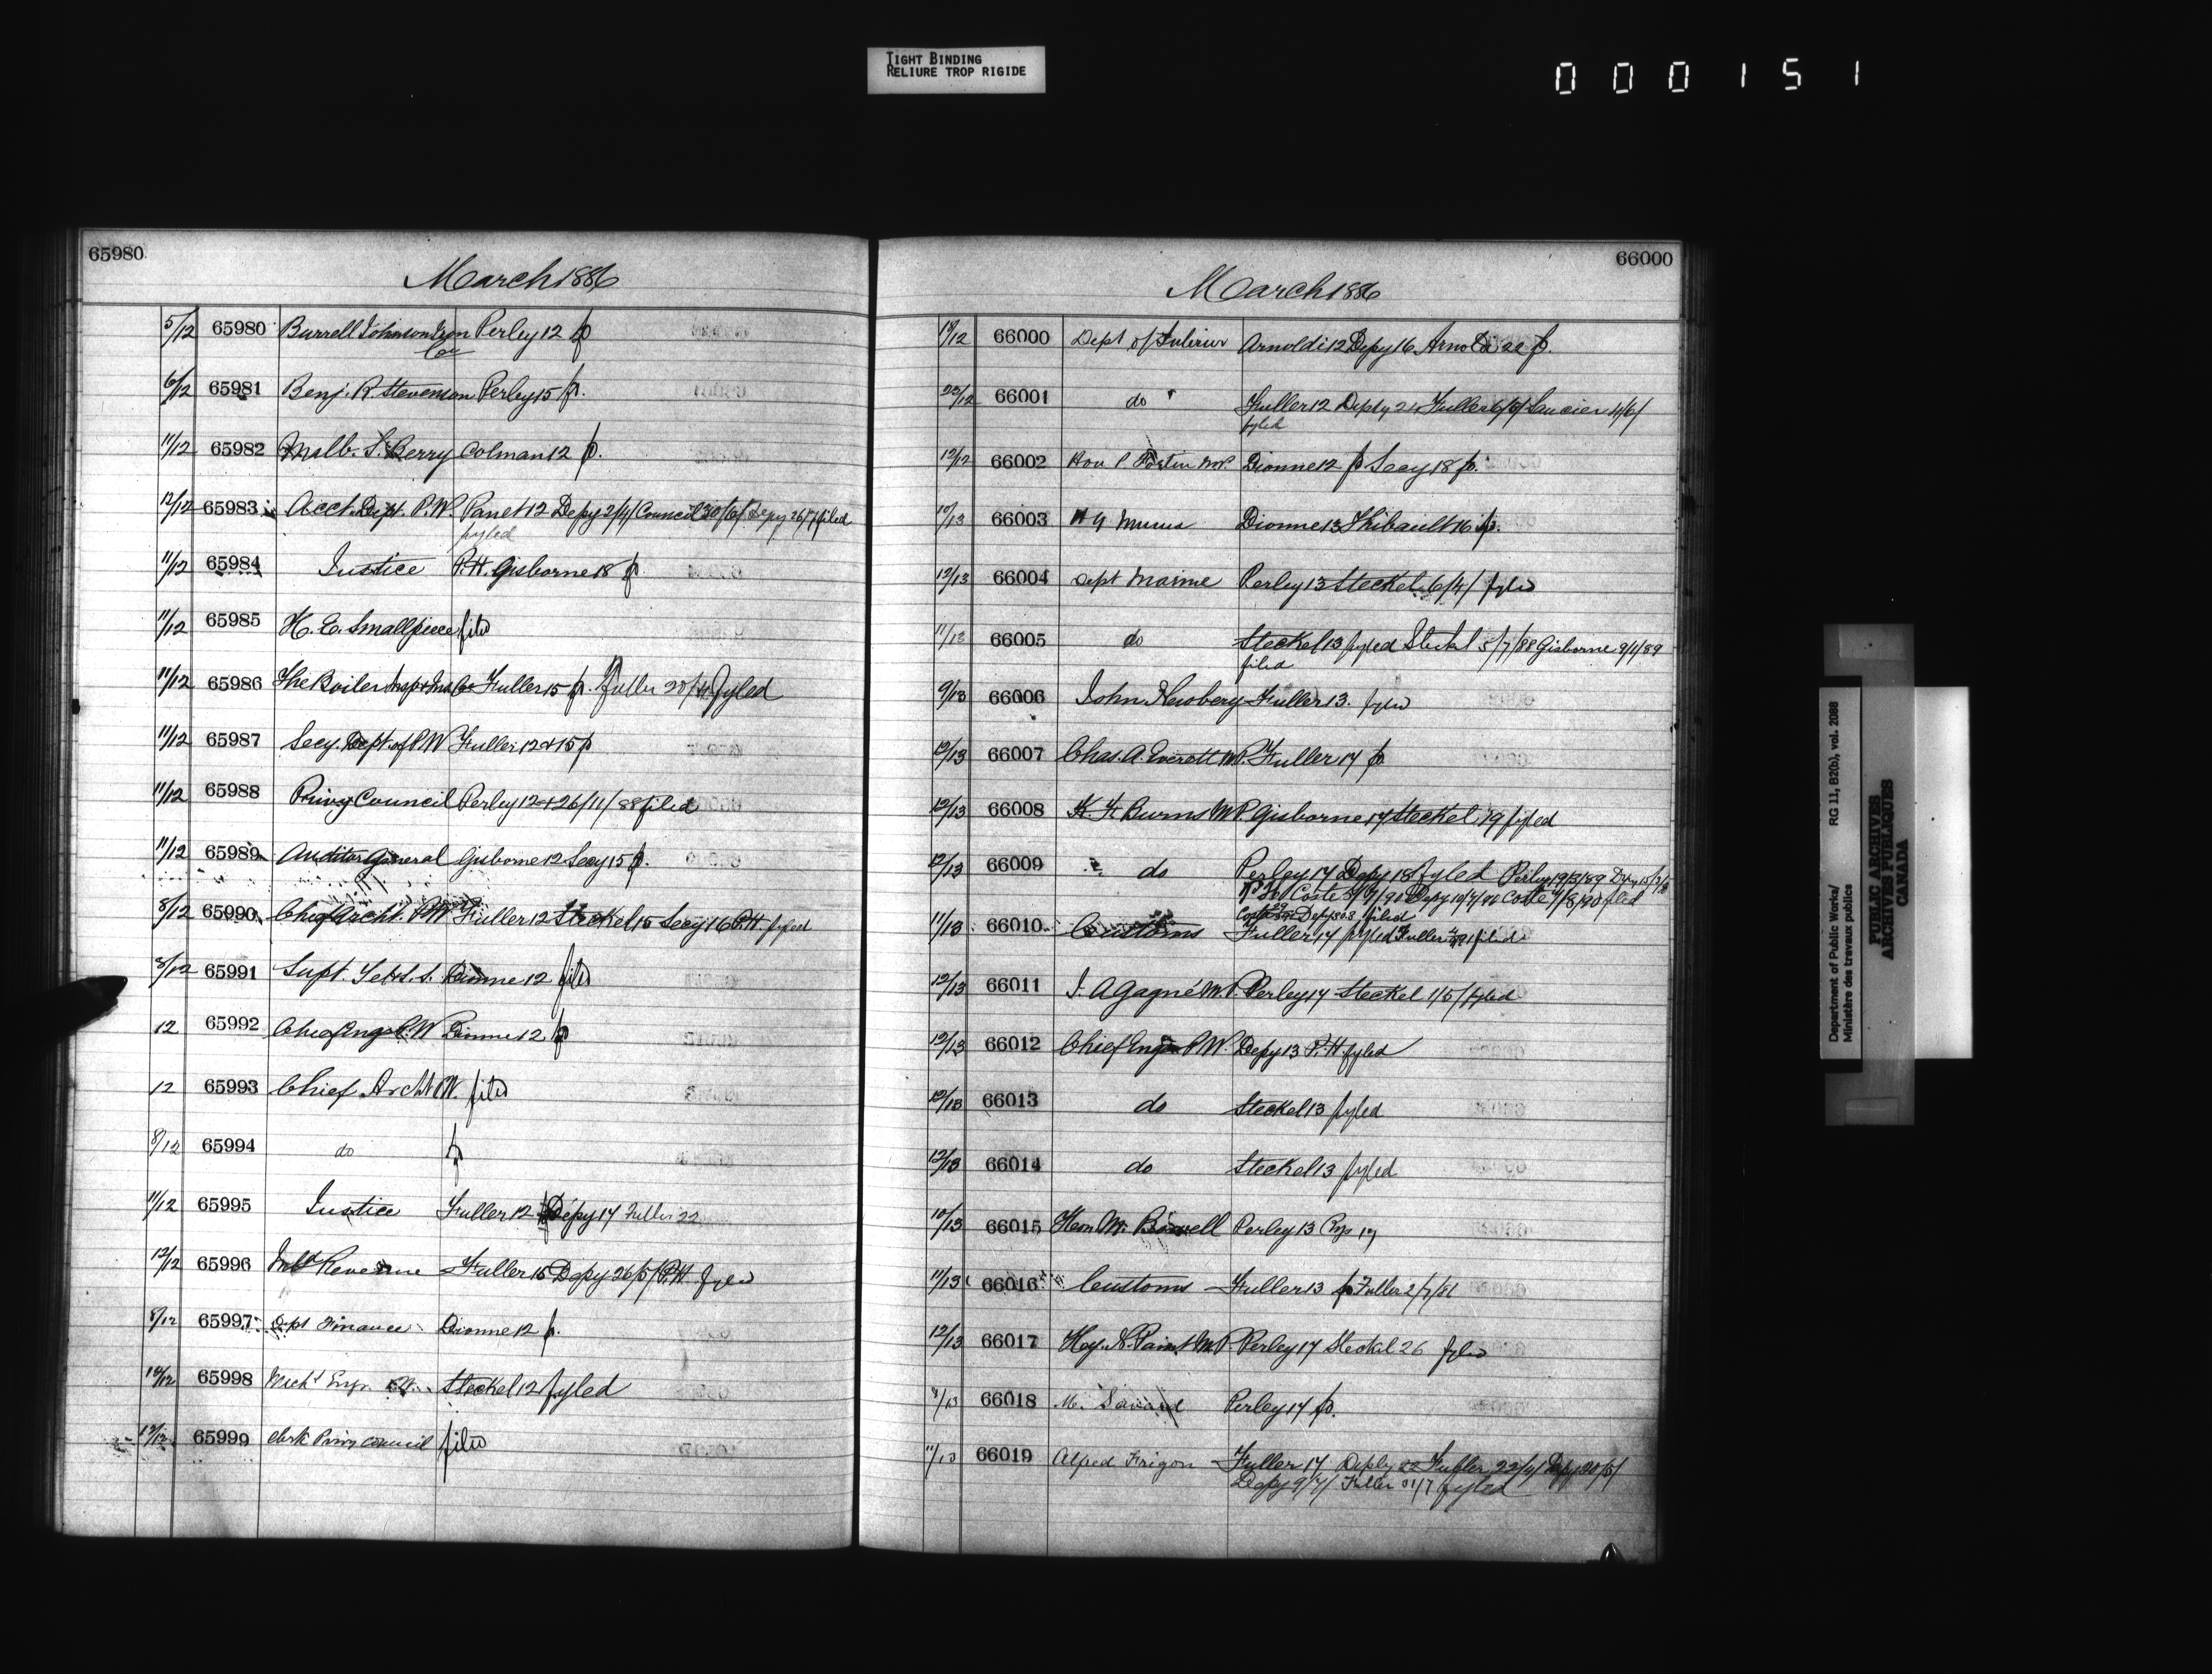 TIGHT BINDING
RELIURE TROP RIGIDE
000151
65980
March 1886
5/12 65980 Burrell Johnson Iron Perley 12 p
Co
6/12 65981 Benj. R. Stevenson Perley 15 p.
11/12 65982 S. Berry Colman 12 p.
12/12 65983 Acct. Dept. P.W. Panet 12 Depy 2/4/ Council 30/6/ Depy 26/7/ filed
fyled
11/12 65984 Justice P.H. Gisborne 18 p
11/12 65985 H. E. Smallpiece filed
11/12 65986 The Boiler Insp & Ins Co Fuller 15 p. Fuller 20/4 fyled
11/12 65987 Secy. Dept. of P.W Fuller 12 & 15 p
11/12 65988 Privy Council Perley 12 & 26/11/88 filed
11/12 65989 Auditor General Gisborne 12 Secy 15 p.
8/12 65990 Chief Archt. P.W Fuller 12 Steckel 15 Secy 16 P.H. fyled
8/12 65991 Supt. Tel & S. S. Dionne 12 filed
12 65992 Chief Engr P.W Dionne 12 p
12 65993 Chief Archt P.W. filed
8/12 65994 do p
11/12 65995 Justice Fuller 12 Depy 17 Fuller 22
12/12 65996 Inld Revenue Fuller 15 Depy 26/5/ P.H. fyled
8/12 65997 Dept Finance Dionne 12 p.
12/12 65998 Mechl Engr. P.W. Steckel 12 fyled
12/12 65999 Clerk Privy Council filed
66000
March 1886
12/12 66000 Dept of Interior Arnoldi 12 Depy 16 Arnoldi 22 p.
66001 do Fuller 12 Depty 24 Fuller 6/5/ Saucier 4/6/
fyled
12/12 66002 Hon P Fortin M.P. Dionne 12 p Secy 18 p.
10/13 66003 Dionne 13 Thibault 16 p.
12/13 66004 Dept Marine Perley 13 Steckel 6/4/ fyled
11/13 66005 do Steckel 13 fyled Steckel 5/7/88 Gisborne 9/1/89
filed
9/13 66006 John Newbery Fuller 13. fyled
12/13 66007 Chas. A. Everett M.P. Fuller 17 p.
12/13 66008 K. F. Burns M.P. Gisborne 17 Steckel 19 fyled
12/13 66009 do Perley 17 Depy 18 fyled Perley 19/3/89
Coste 7/8/90 filed
filed
11/13 66010 Customs Fuller 17 fyled Fuller filed
12/13 66011 J. A Gagné M.P. Perley 17 Steckel 1/5/ fyled
12/13 66012 Chief Engr P.W. Depy 13 P.H. fyled
12/13 66013 do Steckel 13 fyled
12/13 66014 do Steckel 13 fyled
10/13 66015 Hon M. Bowell Perley 13
11/13 66016 Customs Fuller 13 p Fuller 2/7/86
12/13 66017 Hy. N. Paint M.P. Perley 17 Steckel 26 fyled
9/13 66018 M. Savard Perley 17 p.
11/13 66019 Alfred Frigon Fuller 17 Deply 22 Fuller 22/4/ Depy 20/5/
Depy 9/7/ Fuller 31/7 fyled
Department of Public Works/
Ministère des travaux publics
RG 11, B2(b), vol. 2088
PUBLIC ARCHIVES
ARCHIVES PUBLIQUES
CANADA